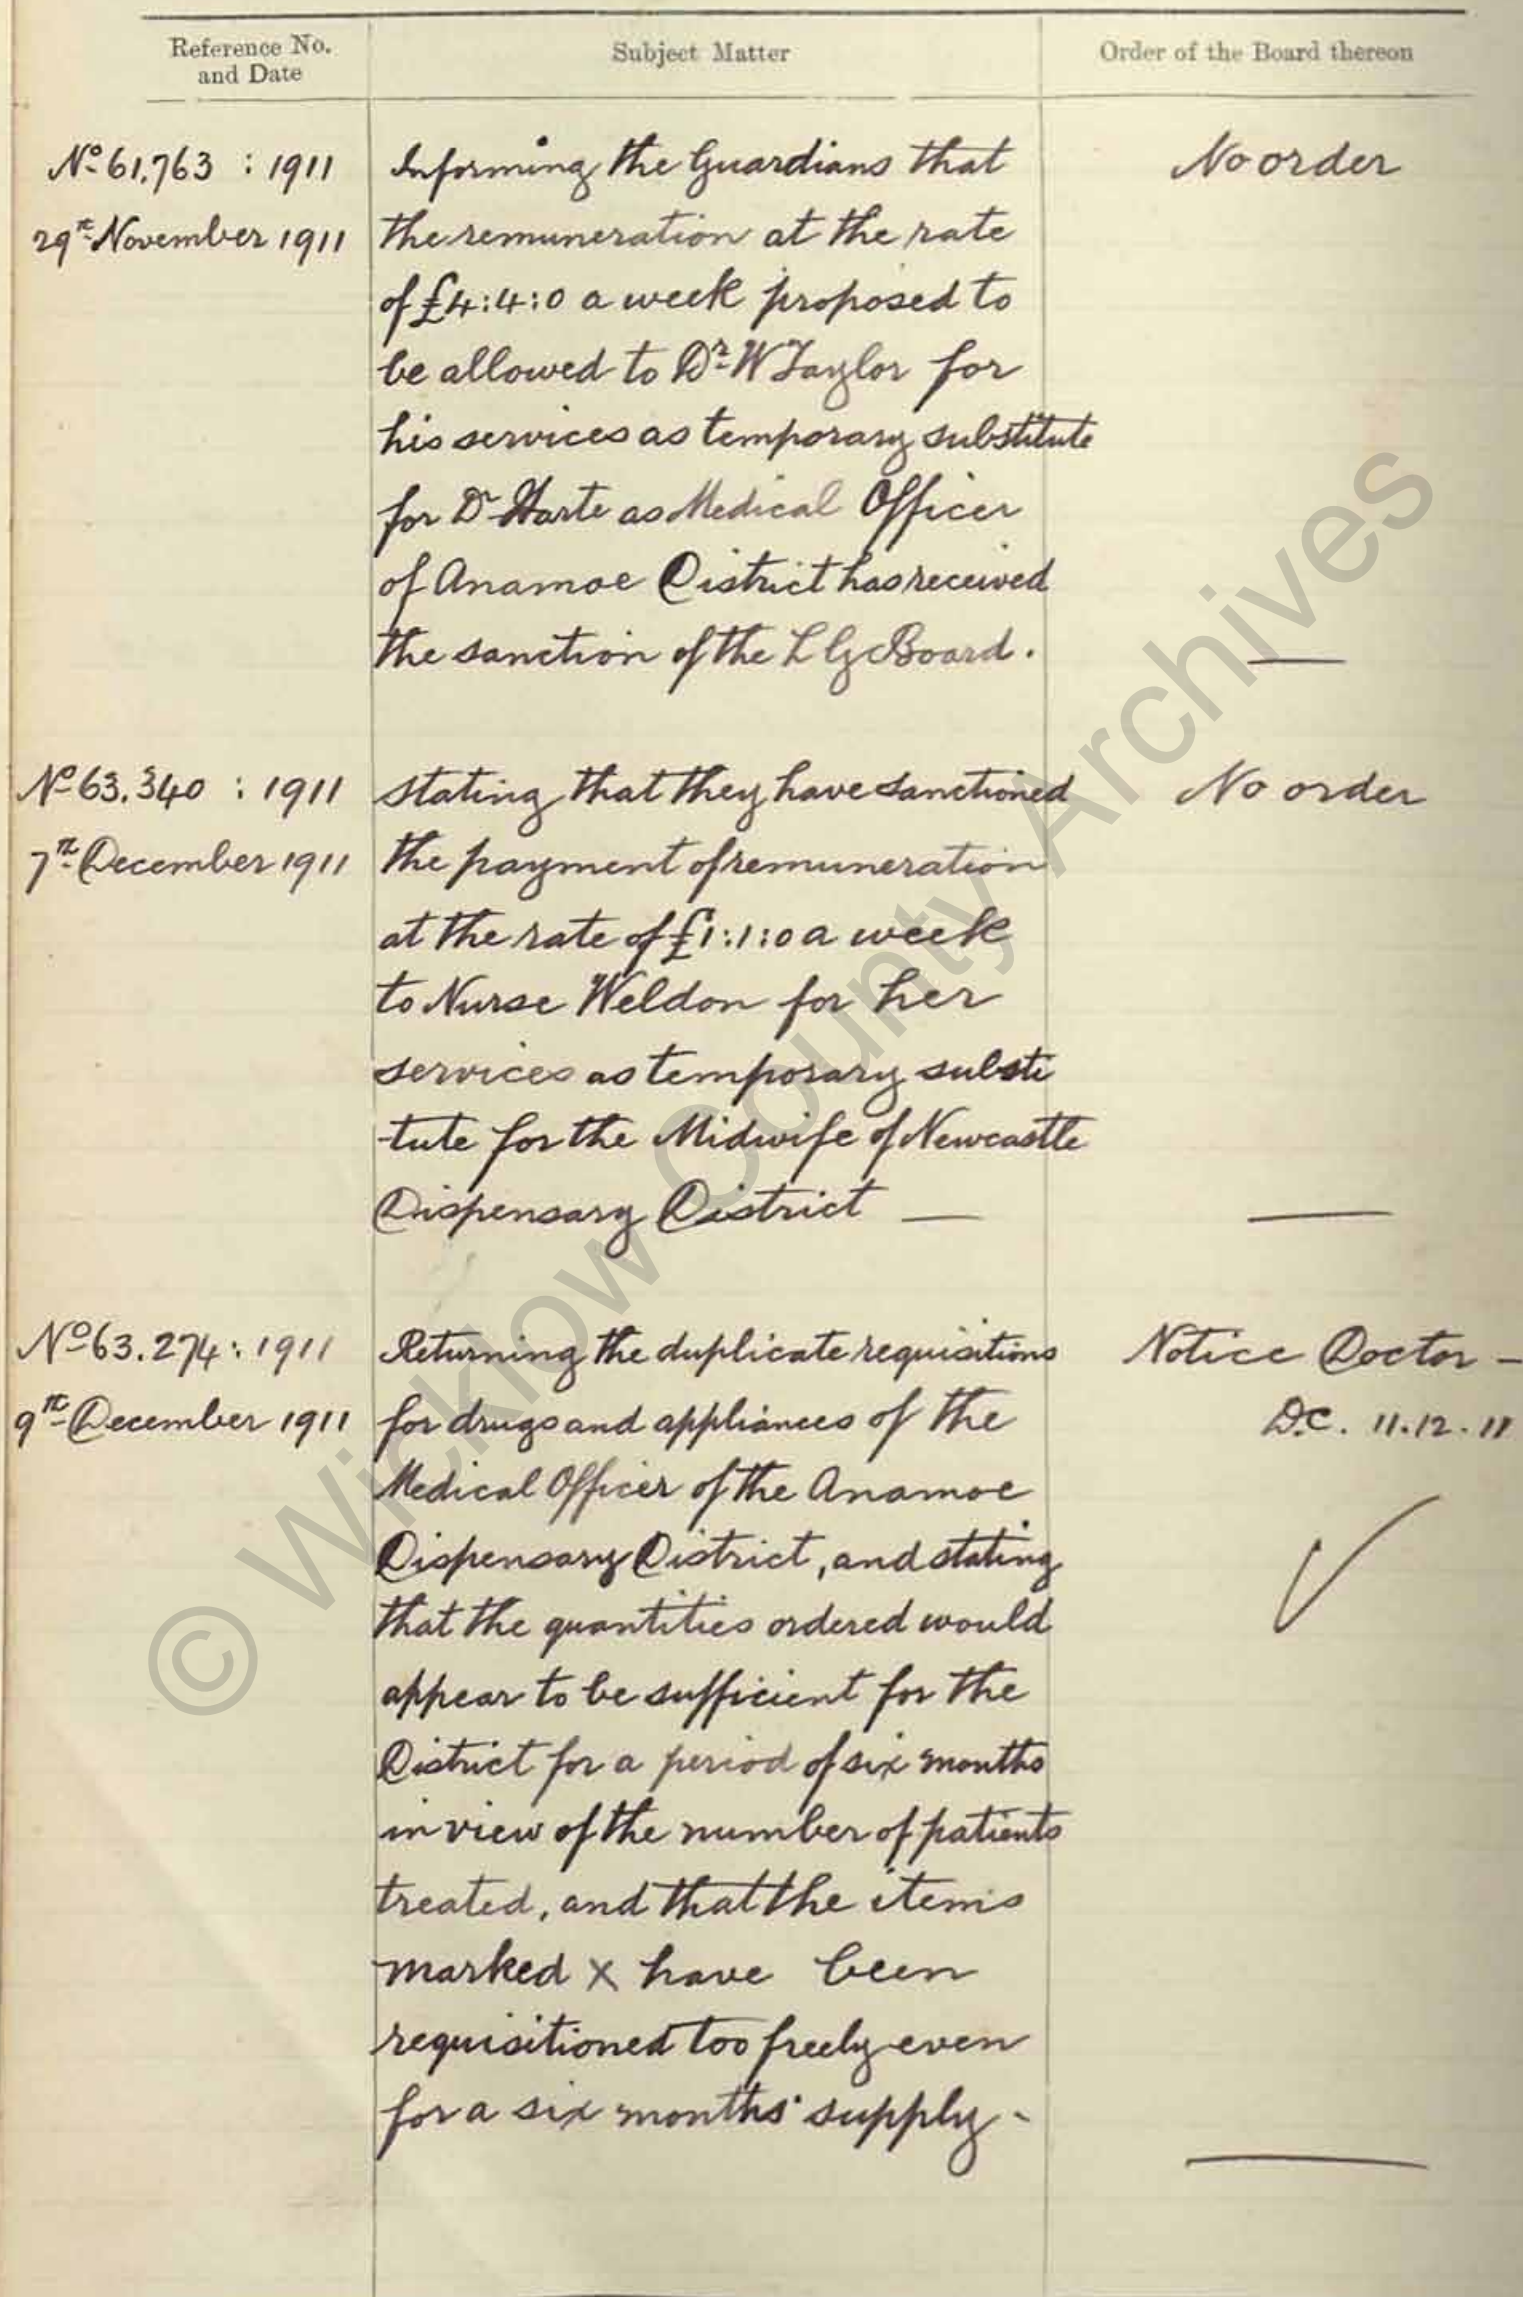 Reference No.
and Date
Subject Matter
Order of the Board thereon
No 61,763 : 1911
29th November 1911
Informing the Guardians that
the remuneration at the rate
of £4:4:0 a week proposed to
be allowed to Dr W Taylor for
his services as temporary substitute
for Dr Harte as Medical Officer
of Anamoe District has received
the sanction of the L G Board.
No order
No 63.340 : 1911
7th December 1911
stating that they have sanctioned
the payment of remuneration
at the rate of £1:1:0 a week
to Nurse Weldon for her
services as temporary substi
-tute for the Midwife of Newcastle
Dispensary District —
No order
No 63.274 : 1911
9th December 1911
Returning the duplicate requisitions
for drugs and appliances of the
Medical Officer of the Anamoe
Dispensary District, and stating
that the quantities ordered would
appear to be sufficient for the
District for a period of six months
in view of the number of patients
treated, and that the items
marked X have been
requisitioned too freely even
for a six months' supply -
Notice Doctor –
D.C. 11.12.11
© Wicklow County Archives